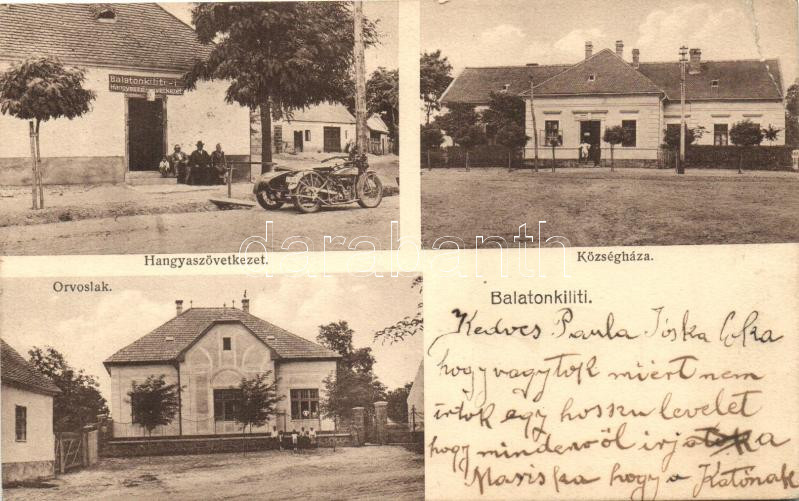 Balatonkiliti-i
Hangyaszövetkezet
Hangyaszövetkezet.
Községháza.
darabanth
Orvoslak.
Balatonkiliti.
Kedves Paula Jóska
hogy vagytok miért nem
irtok egy hosszu levelet
hogy mindenről irja a
Mariska hogy a Katónak